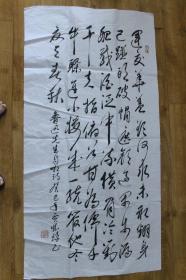 運交華蓋欲何求未敢翻身
已碰頭破帽遮顏過鬧市漏
船載酒泛中流橫眉冷對
千夫指俯首甘為孺子
牛躲進小樓成一統管他冬
夏与春秋 魯迅先生自嘲詩